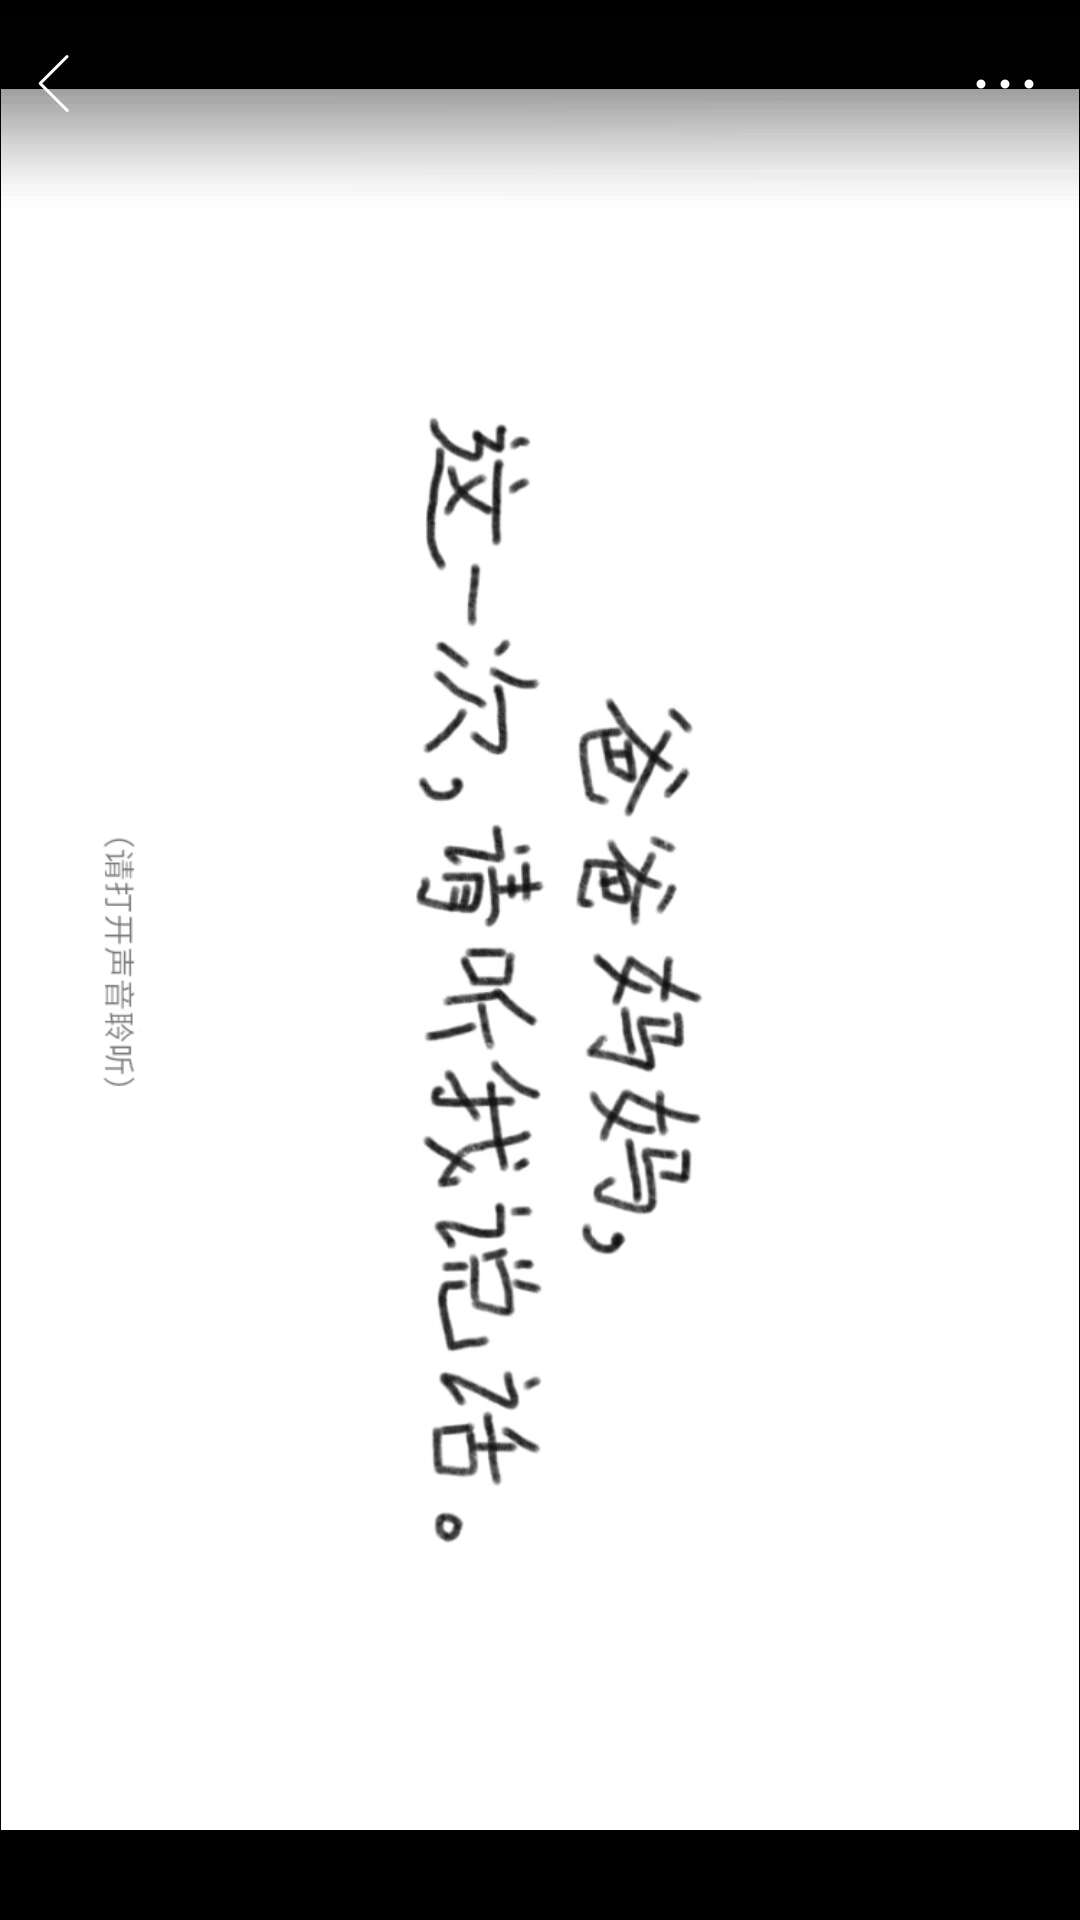 爸爸妈妈,
这一次,请听我说话。
(请打开声音聆听)